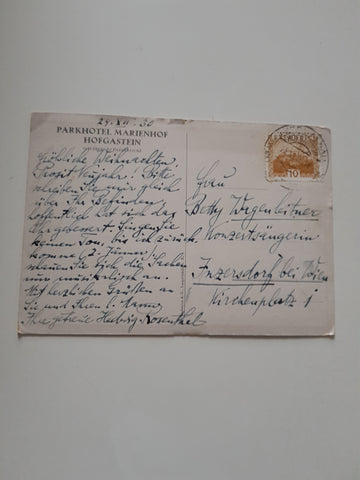 24. XII. 30
PARKHOTEL MARIENHOF
HOFGASTEIN
Fröhliche Weihnachten,
Prosit Neujahr! Bitte
schreiben Sie mir gleich
über Ihr Befinden,
hoffentlich hat sich das
gebessert. Singen Sie
keinen Ton, bis ich zurück
komme (2. Jänner)
schauen Sie sich die Sachen
nur musikalisch an.
Mit herzlichen Grüßen an
Sie und Ihren
Ihre getreue Hedwig Rosenthal
10
Frau
Betty Wagenleitner
Konzertsängerin
Inzersdorf bei Wien
Kirchenplatz 1